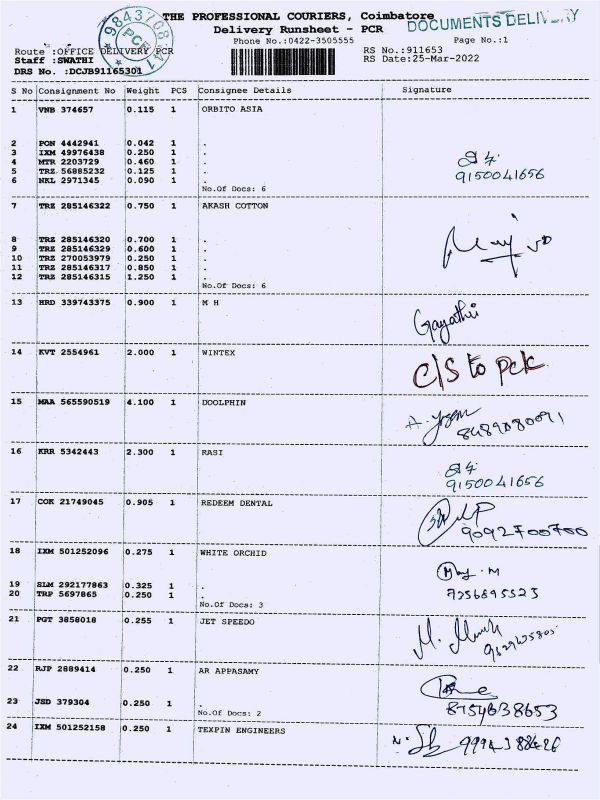 THE PROFESSIONAL COURIERS, Coimbatore
DOCUMENTS DELIVERY
Delivery Runsheet - PCR
Phone No.:0422-3505555 Page No.:1
Route :OFFICE DELIVERY PCR RS No.:911653
Staff :SWATHI RS Date:25-Mar-2022
DRS No. :DCJB91165301
PCR
S No Consignment No Weight PCS Consignee Details Signature
1 VNB 374657 0.115 1 ORBITO ASIA
2 PON 4442941 0.042 1 .
3 IXM 49976438 0.250 1 .
4 MTR 2203729 0.460 1 .
5 TRZ 56885232 0.125 1 .
6 NKL 2971345 0.090 1 .
9150041656
No.Of Docs: 6
7 TRZ 285146322 0.750 1 AKASH COTTON
8 TRZ 285146320 0.700 1 .
9 TRZ 285146329 0.600 1 .
10 TRZ 270053979 0.250 1 .
11 TRZ 285146317 0.850 1 .
12 TRZ 285146315 1.250 1 .
No.Of Docs: 6
13 HRD 339743375 0.900 1 M H
Gayathri
14 KVT 2554961 2.000 1 WINTEX
C/S to pck
15 MAA 565590519 4.100 1 DOOLPHIN
8489080091
16 KRR 5342443 2.300 1 RASI
9150041656
17 COK 21749045 0.905 1 REDEEM DENTAL
9092700700
18 IXM 501252096 0.275 1 WHITE ORCHID
19 SLM 292177863 0.325 1 .
20 TRP 5697865 0.250 1 .
No.Of Docs: 3
21 PGT 3858018 0.255 1 JET SPEEDO
22 RJP 2889414 0.250 1 AR APPASAMY
23 JSD 379304 0.250 1 .
8754638653
No.Of Docs: 2
24 IXM 501252158 0.250 1 TEXPIN ENGINEERS